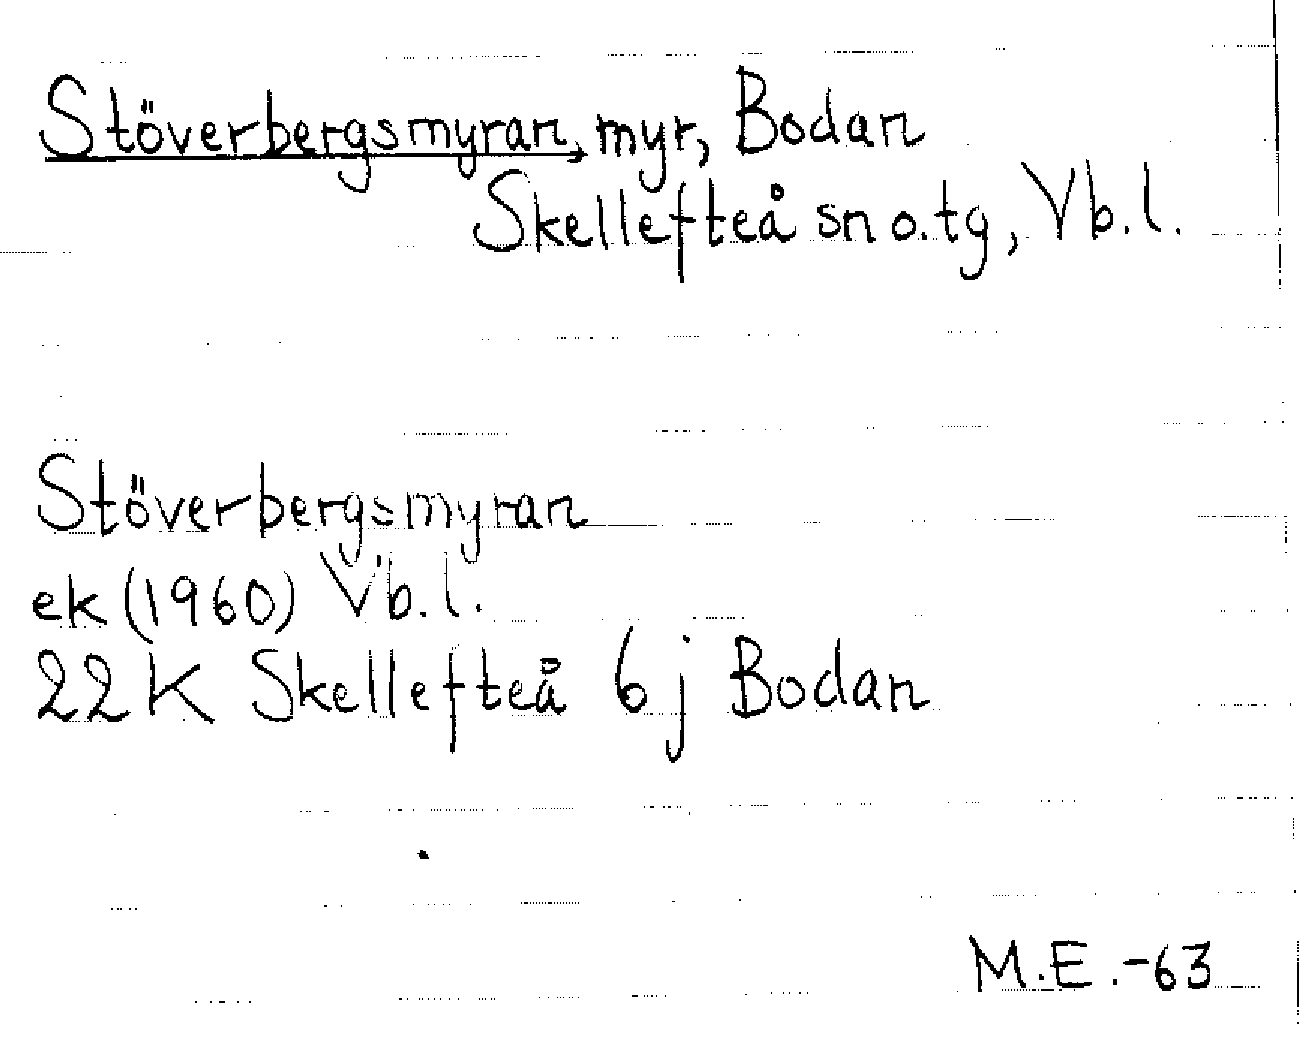 Stöverbergsmyran, myr, Bodan
Skellefteå sn o. tg, Vb. l.
Stöverbergsmyran
ek (1960) Vb. l.
22 K Skellefteå 6 j Bodan
M.E. -63